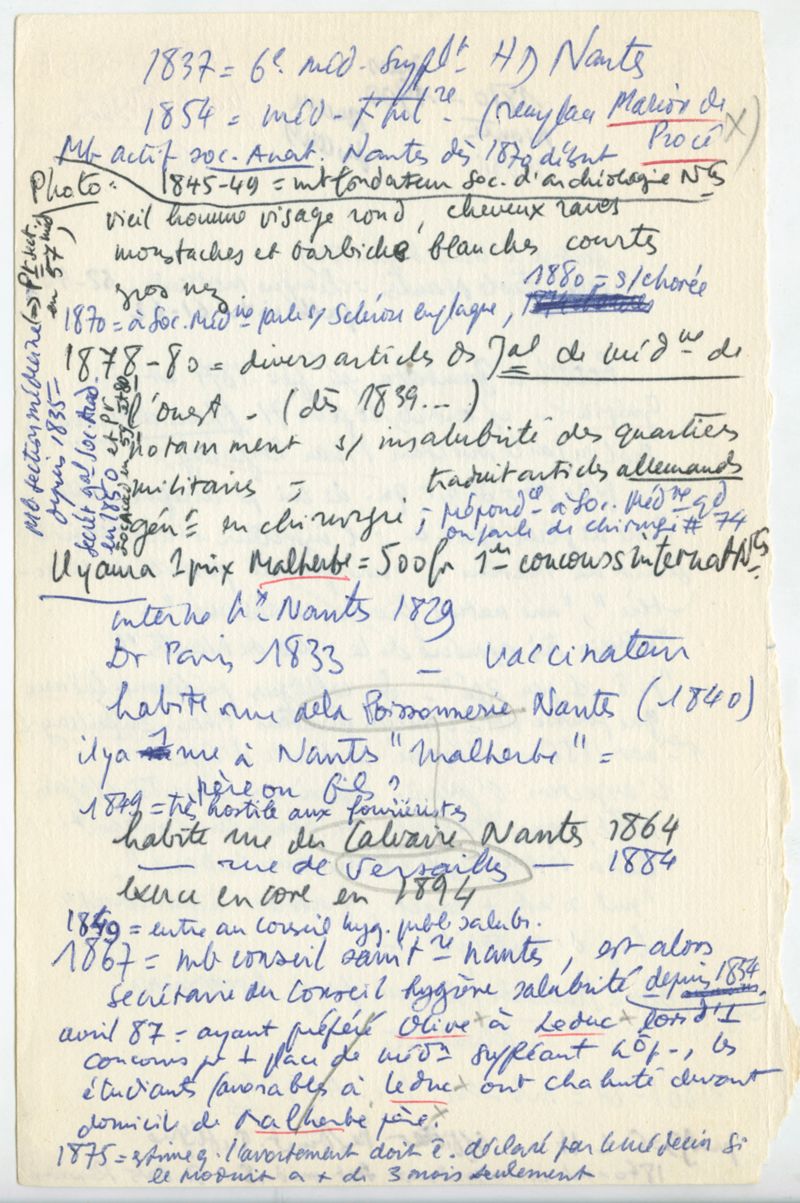 1837 = 6e méd-supplt HD Nantes
1854 = méd-       (remplace Marion de
Procé X)
Mb actif soc. Anat. Nantes dès 1870 début
Photo : 1845-49 = mb fondateur Soc. d'archéologie Ntes
vieil homme visage rond, cheveux rares
moustaches et barbiche blanches courtes
gros nez
1880 = s/chorée
1870 = à Soc. médne parle s/ Sclérose en plaque,
1878-80 = divers articles ds Jal de médne de
l'ouest - (dès 1839...)
notamment s/ insalubrité des quartiers
militaires = traduit articles allemands
géné en chirurgie ; répond à Soc. Médne qd
on parle de chirurgie # 74
Il y aura 1 prix Malherbe = 500 fr 1er concours internat Ntes
Mb section médecine (=> Pt sect. en 57 mid)
depuis 1835 -
Secrét gal Soc. Acad.
en 1850 et Pt
interne Hx Nantes 1829
Dr Paris 1833 = vaccinateur
habite rue de la Poissonnerie Nantes (1840)
il y a 1 rue à Nantes "Malherbe" =
père ou fils ?
1849 = très hostile aux fouriéristes
habite rue du Calvaire Nantes 1864
— rue de Versailles — 1884
exerce encore en 1894
1849 = entre au conseil hyg. publ. salubr.
1867 = mb conseil sanitre Nantes, est alors
secrétaire du Conseil hygiène salubrité depuis 1854
avril 87 = ayant préféré Olive + à Leduc + lors d'1
concours pr 1 place de médn suppléant hôp-, les
étudiants favorables à Leduc + ont chahuté devant
domicile de Malherbe père.
1875 = estime q. l'avortement doit ê. déclaré par le médecin si
le produit a + di 3 mois seulement